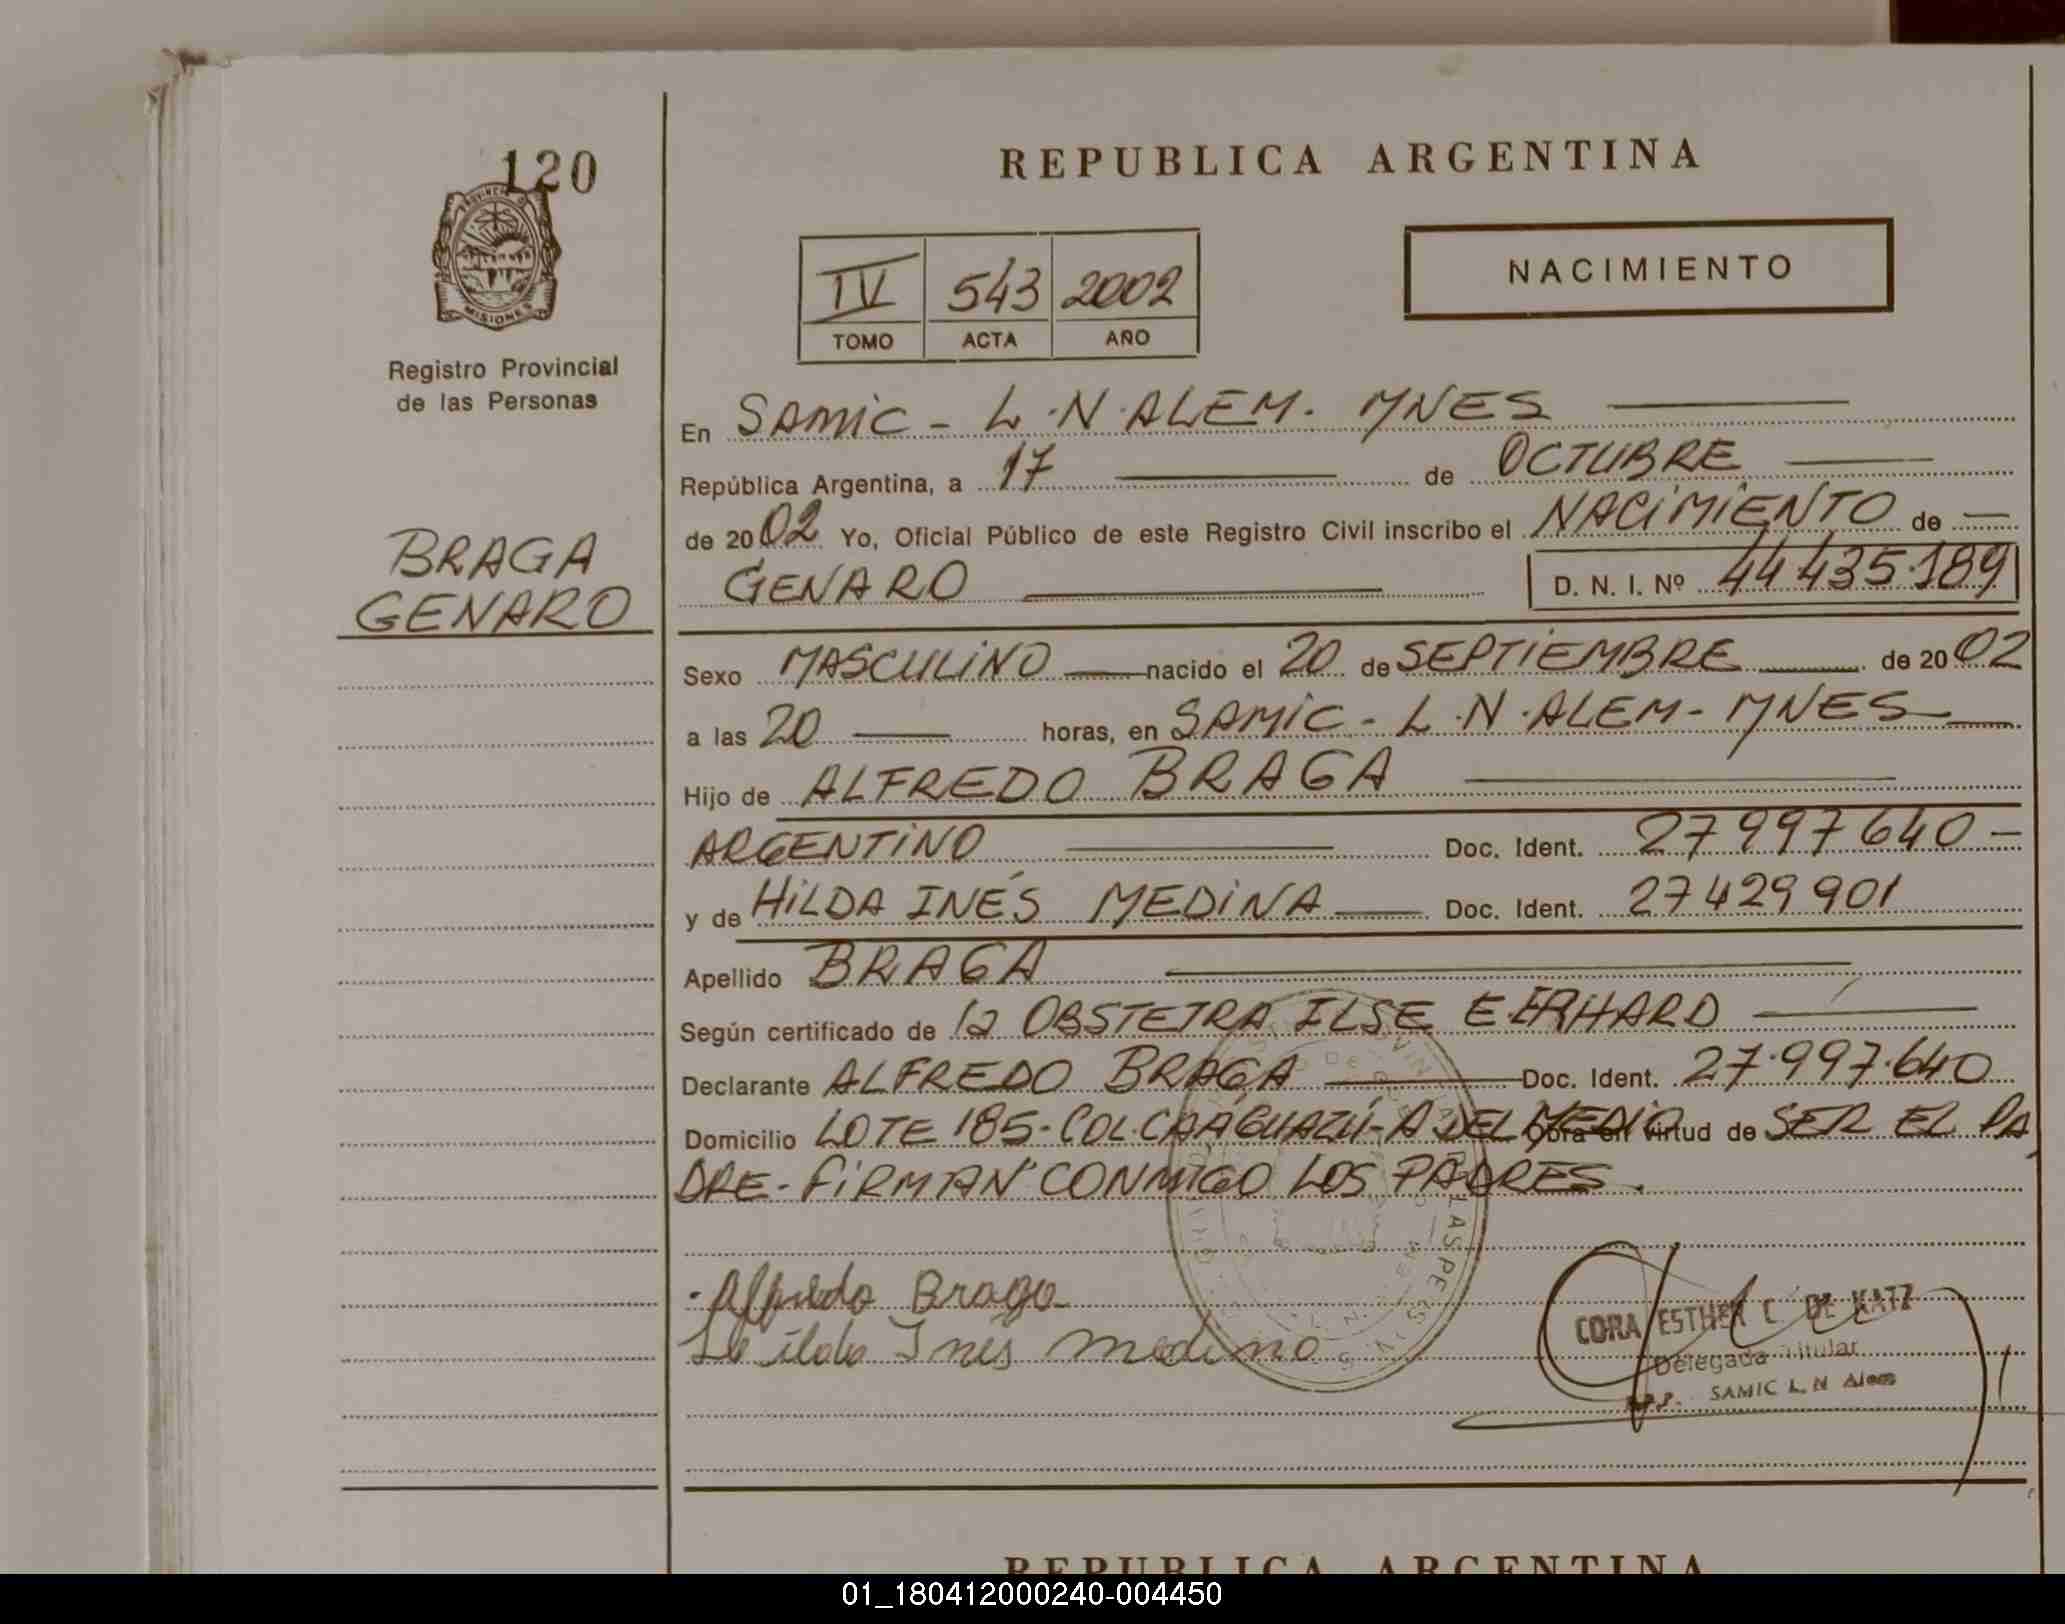 120
PROVINCIA D
MISIONES
Registro Provincial
de las Personas
BRAGA
GENARO
REPUBLICA ARGENTINA
IV 543 2002
TOMO ACTA AÑO
NACIMIENTO
En SAMIC - L.N.ALEM. MNES
República Argentina, a 17 de OCTUBRE
de 2002 Yo, Oficial Público de este Registro Civil inscribo el NACIMIENTO de
GENARO D. N. I. Nº 44 435.189
Sexo MASCULINO nacido el 20 de SEPTIEMBRE de 2002
a las 20 horas, en SAMIC - L.N.ALEM - MNES
Hijo de ALFREDO BRAGA
ARGENTINO Doc. Ident. 27 997 640 -
y de HILDA INÉS MEDINA Doc. Ident. 27 429 901
Apellido BRAGA
Según certificado de la OBSTETRA ILSE
Declarante ALFREDO BRAGA Doc. Ident. 27.997.640
Domicilio LOTE 185 - COL CAÁGUAZÚ - A DEL MEDIO Obra en virtud de SER EL PA
DRE - FIRMAN CONMIGO LOS PADRES.
Alfredo Braga
Hilda Inés Medina
CORA ESTHER C DE KATZ
Delegada Titular
SAMIC L. N Alem
REPUBLICA ARGENTINA
01_180412000240-004450